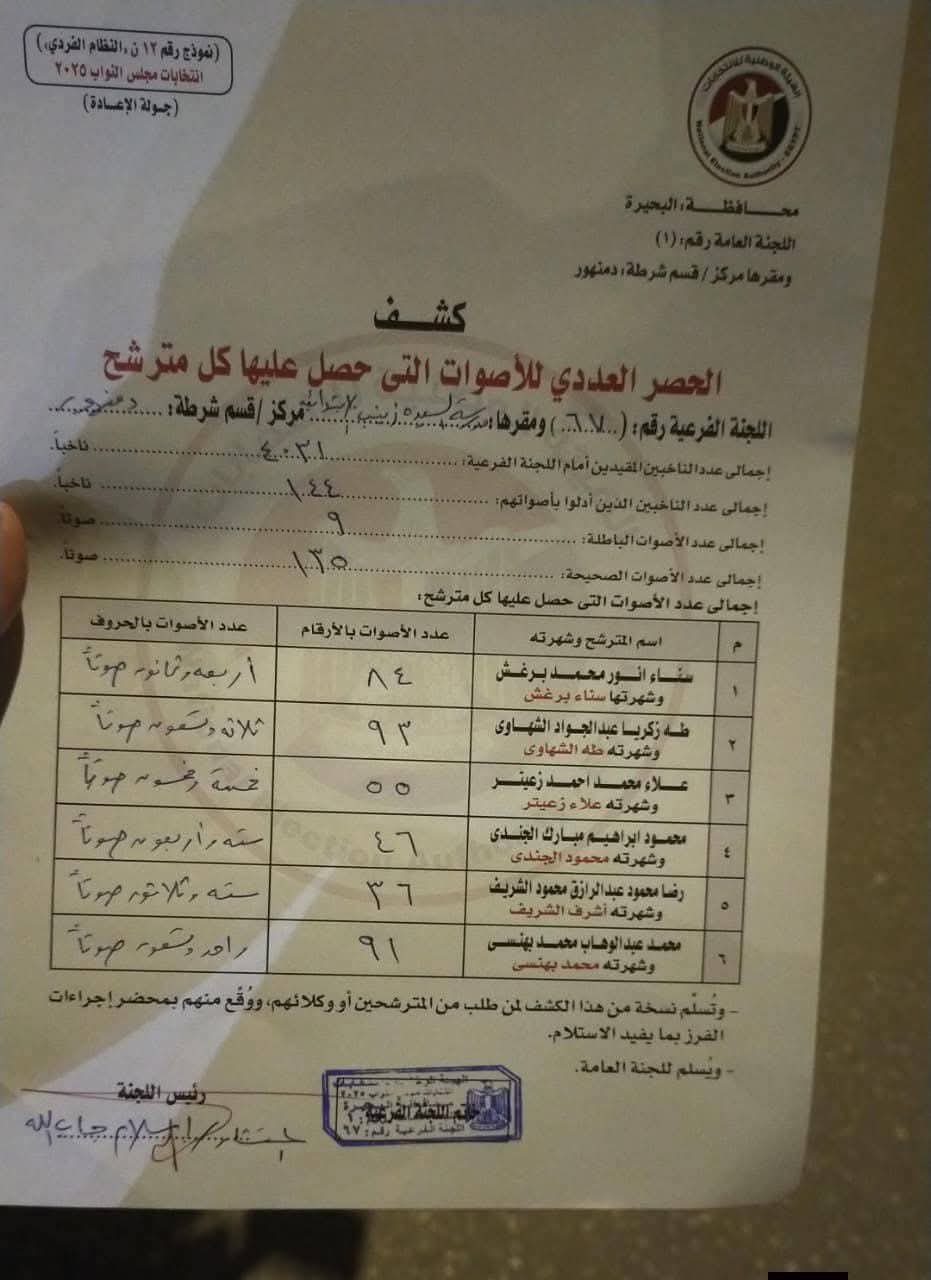 (نموذج رقم ١٢ ن ،النظام الفردي،)
انتخابات مجلس النواب ٢٠٢٥
(جولة الإعادة)
الهيئة الوطنية للانتخابات
National Election Authority - EGYPT
محافظة: البحيرة
اللجنة العامة رقم: (١)
ومقرها مركز / قسم شرطة: دمنهور
كشف
الحصر العددي للأصوات التى حصل عليها كل مترشح
اللجنة الفرعية رقم: (٦٧) ومقرها: مدرسة السيدة زينب الابتدائية مركز /قسم شرطة: دمنهور
إجمالى عدد الناخبين المقيدين أمام اللجنة الفرعية: ٤٠٣١ ناخباً.
إجمالى عدد الناخبين الذين أدلوا بأصواتهم: ١٤٤ ناخباً.
إجمالى عدد الأصوات الباطلة: ٩ صوتاً.
إجمالى عدد الأصوات الصحيحة: ١٣٥ صوتاً.
إجمالى عدد الأصوات التى حصل عليها كل مترشح:
م اسم المترشح وشهرته عدد الأصوات بالأرقام عدد الأصوات بالحروف
١ سناء انور محمد برغش ٨٤ أربعه وثمانون صوتاً
وشهرتها سناء برغش
٢ طه زكريا عبدالجواد الشهاوى ٩٣ ثلاثه وتسعون صوتاً
وشهرته طه الشهاوى
٣ علاء محمد احمد زعيتر ٥٥ خمسة وخمسون صوتاً
وشهرته علاء زعيتر
٤ محمود ابراهيم مبارك الجندى ٤٦ سته وأربعون صوتاً
وشهرته محمود الجندى
٥ رضا محمود عبدالرازق محمود الشريف ٣٦ سته وثلاثون صوتاً
وشهرته أشرف الشريف
٦ محمد عبدالوهاب محمد بهنسى ٩١ واحد وتسعون صوتاً
وشهرته محمد بهنسى
- وتُسلَّم نسخة من هذا الكشف لمن طلب من المترشحين أو وكلائهم، ووُقَّع منهم بمحضر إجراءات
الفرز بما يفيد الاستلام.
- ويُسلم للجنة العامة.
رئيس اللجنة
خاتم اللجنة الفرعية
اللجنة الفرعية رقم: ٦٧